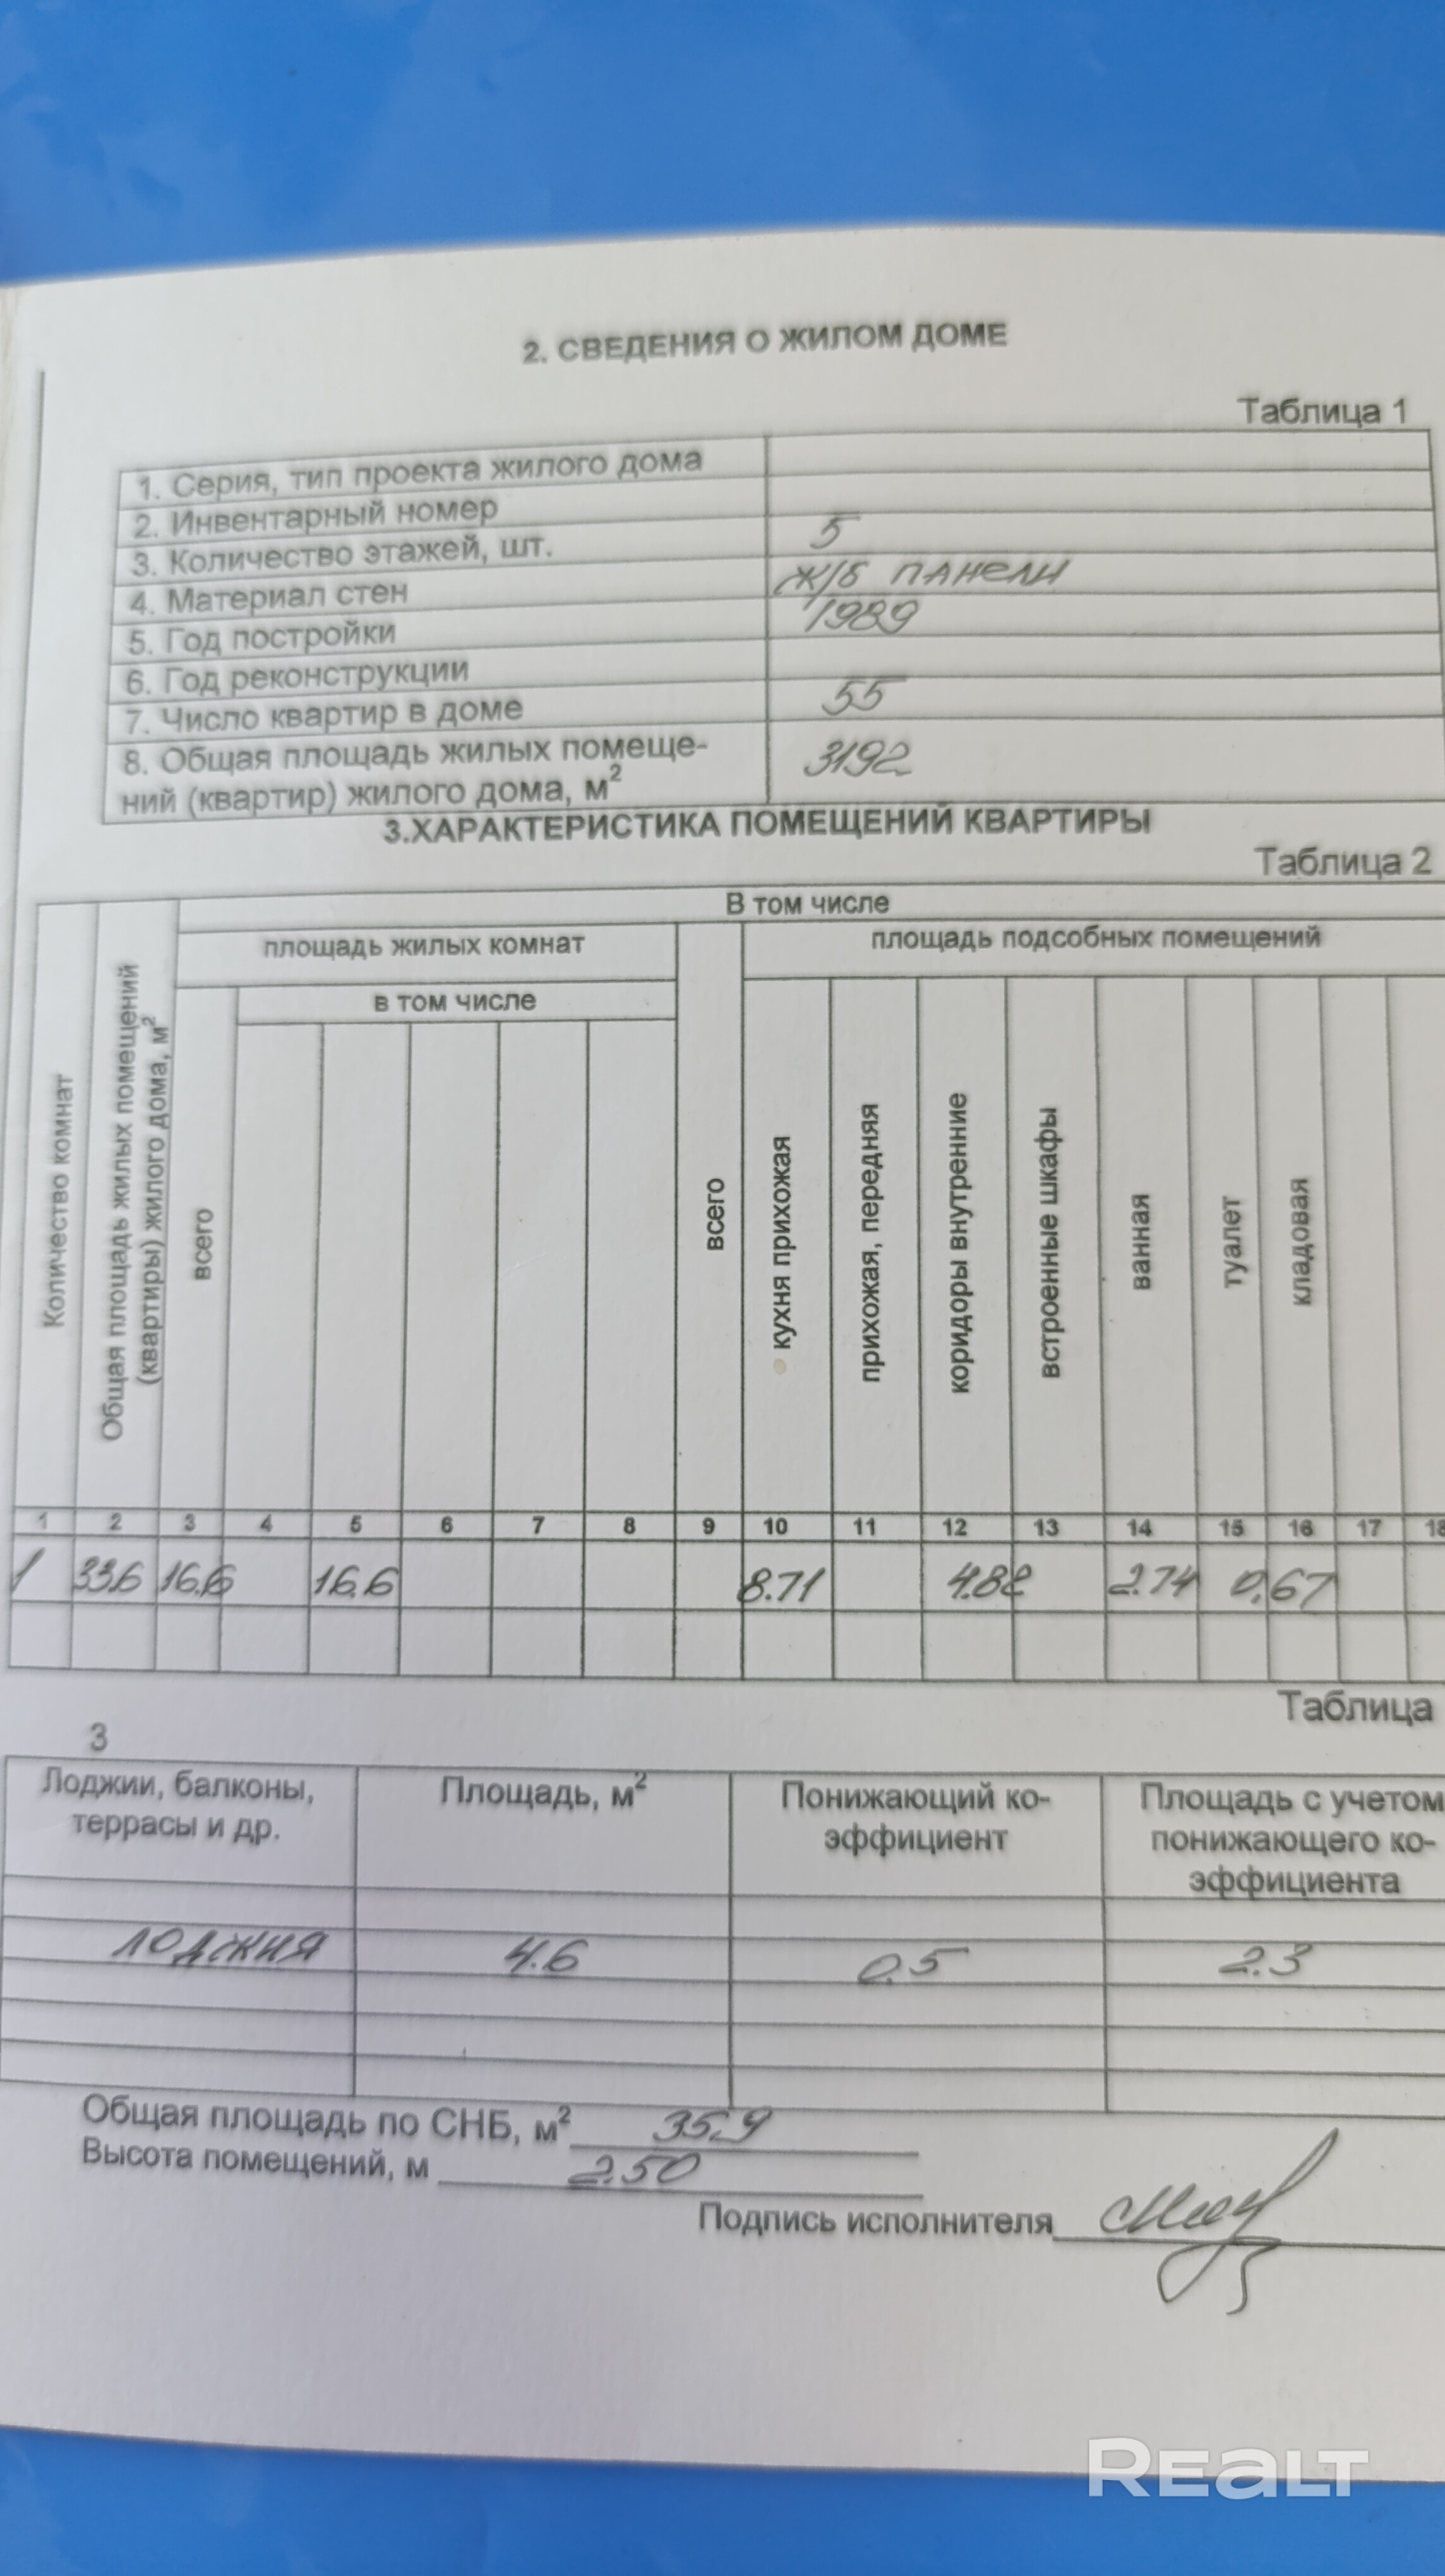 2. СВЕДЕНИЯ О ЖИЛОМ ДОМЕ
Таблица 1
1. Серия, тип проекта жилого дома
2. Инвентарный номер
3. Количество этажей, шт. 5
4. Материал стен Ж/Б ПАНЕЛИ
5. Год постройки 1989
6. Год реконструкции
7. Число квартир в доме 55
8. Общая площадь жилых помеще-
ний (квартир) жилого дома, м² 3192
3.ХАРАКТЕРИСТИКА ПОМЕЩЕНИЙ КВАРТИРЫ
Таблица 2
В том числе
площадь жилых комнат площадь подсобных помещений
в том числе
Количество комнат
Общая площадь жилых помещений
(квартиры) жилого дома, м²
всего
всего
кухня прихожая
прихожая, передняя
коридоры внутренние
встроенные шкафы
ванная
туалет
кладовая
1 2 3 4 5 6 7 8 9 10 11 12 13 14 15 16 17 18
1 33.6 16.6 16.6 8.71 4.88 2.74 0,67
Таблица
3
Лоджии, балконы, Площадь, м² Понижающий ко- Площадь с учетом
террасы и др. эффициент понижающего ко-
эффициента
ЛОДЖИЯ 4.6 0.5 2.3
Общая площадь по СНБ, м² 35.9
Высота помещений, м 2.50
Подпись исполнителя
REALT